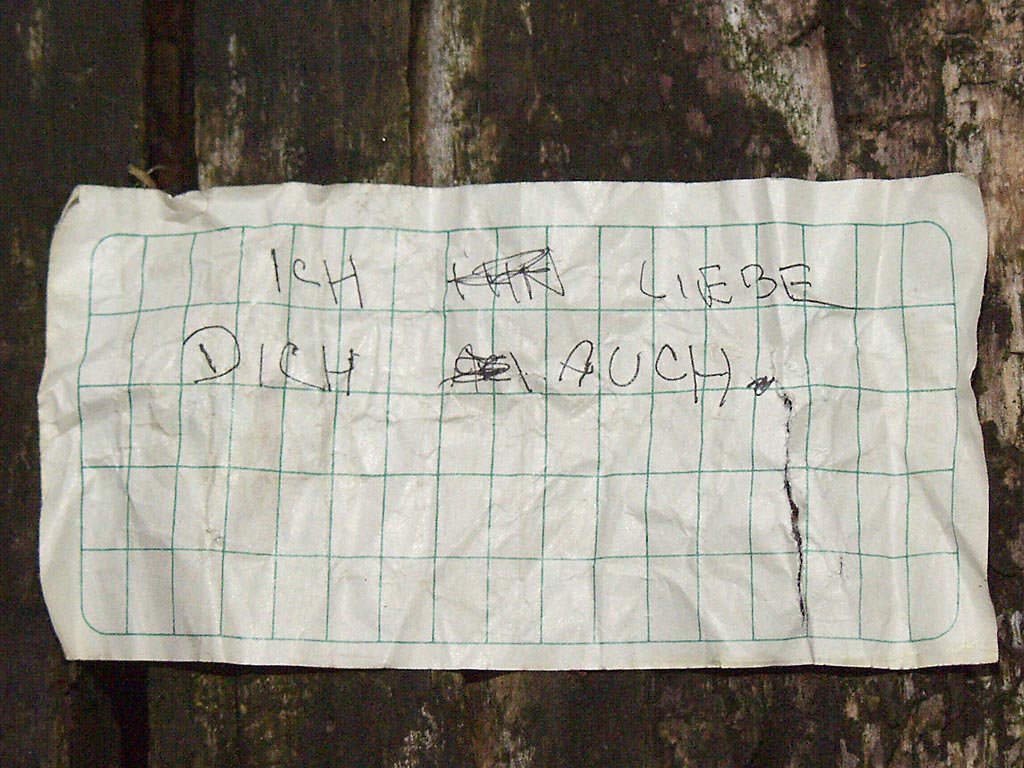 ICH LIEBE
DICH AUCH.